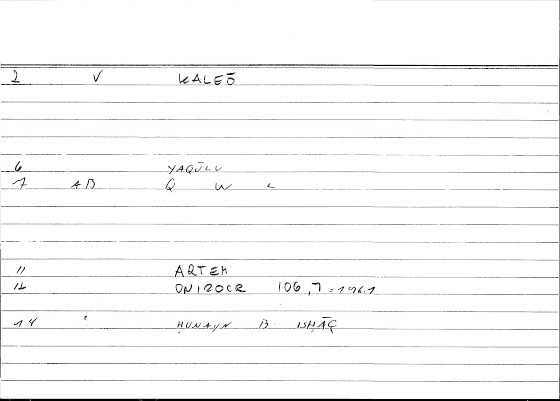 2 V KALEŌ
6 YAQŪLU
7 AB Q W L
11 ARTEM
12 ONIROCR 106,7 = 196.1
18 " ḤUNAYN B ISḤĀQ